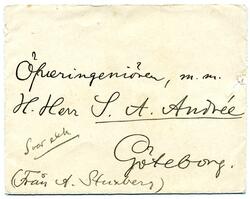 Öfveringeniören, m.m.
H. Herr S. A. Andrée
Svar
Göteborg.
(Från A. Stuxberg)